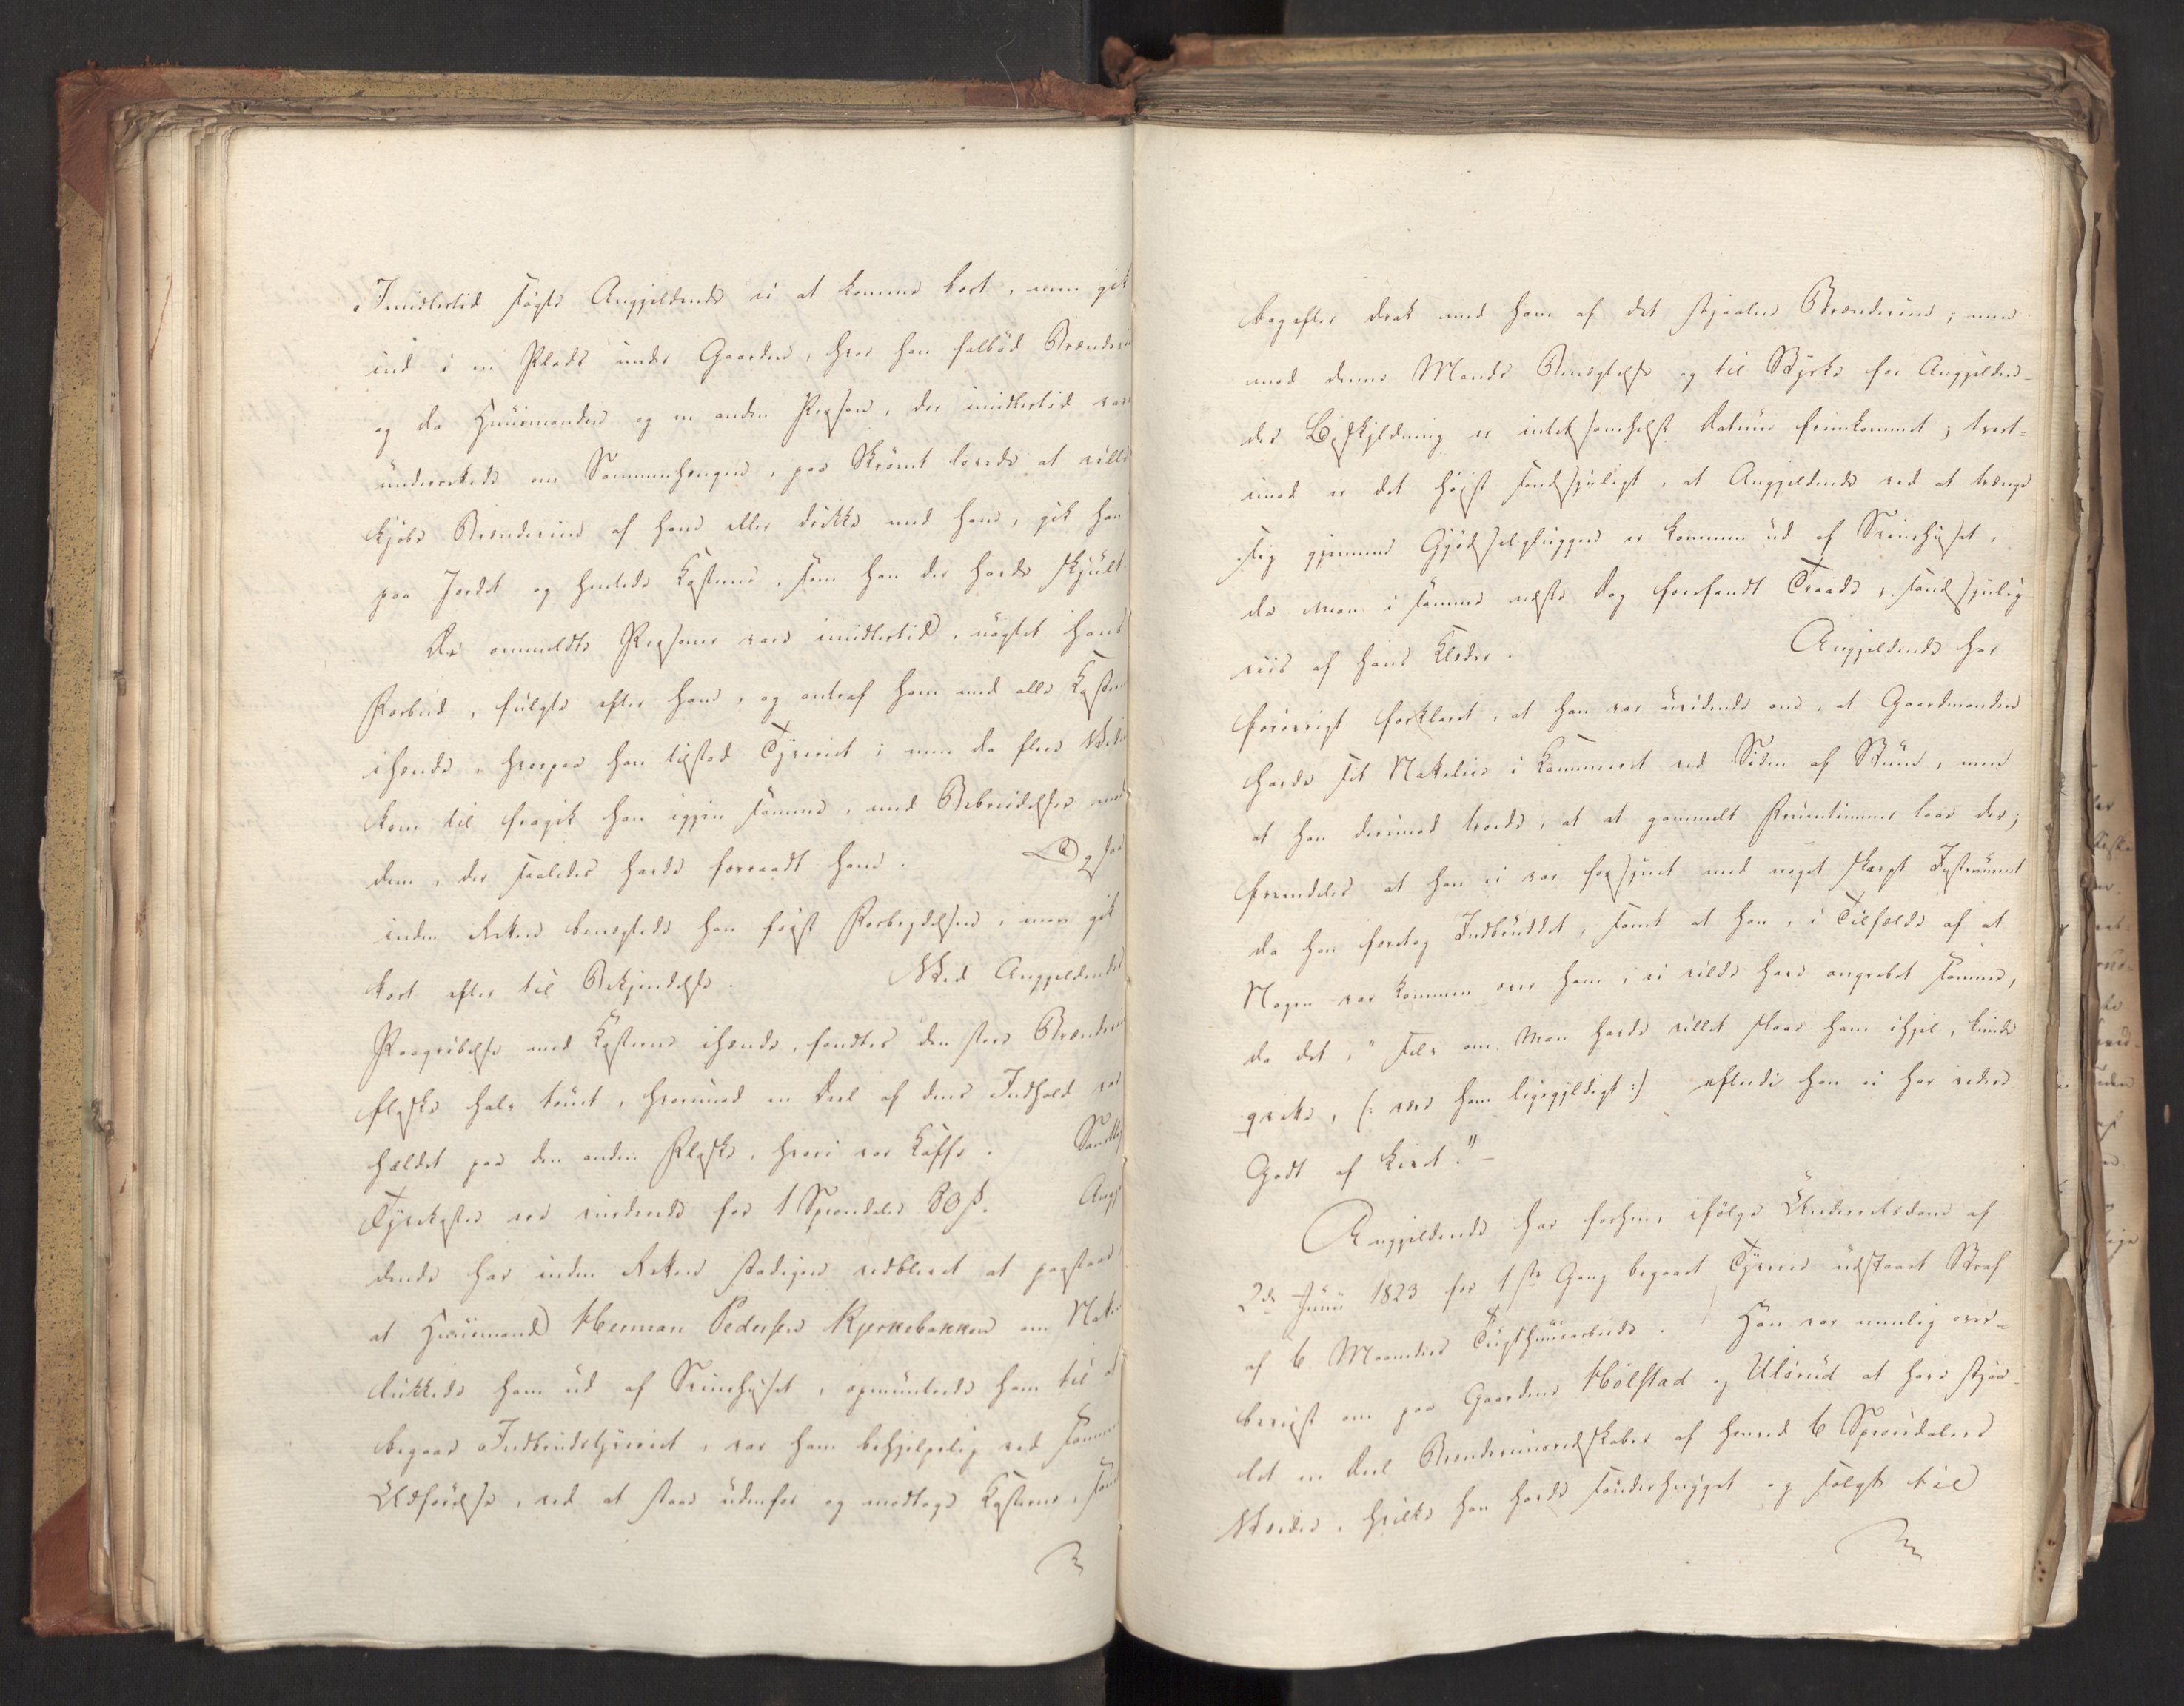 Imidlertid søgte Angjeldende ei at komme bort, men gik
ind i en Plads under Gaarden, hvor han falbød Brændeviin
og da Huusmanden og en anden Person, der imidlertid var
underrettede om Sammenhængen, paa Skrømt lovede at ville
kjøbe Brændeviin af ham eller drikke med ham, gik han
paa Jordet og hentede Kassterne, som han der havde skjult.
De ommeldte Personer vare imidlertid, uagtet hans
Forbud, fulgte efter ham, og antraf ham med alle
ihænde, hvorpaa han tilstod Tyveriet; men da flere Vidner
kom til fragik han igjen samme, med Bebreidelser mod
dem, der saaledes havde forraadt ham. Ogsaa
inden Retten benegtede han først Forbrydelsen, men gik
kort efter til Bekjendelse. Ved Angjeldendes
Paagribelse med Kosterne ihænde, fandtes den store Brændeviins
flaske halv tømt, hvorimod en Deel af dens Indhold var
hældet paa den anden Flaske, hvori var Kaffe. Samtlige
Tyvekoster ere vurderede for 1 Speciedaler 30 ß. Angjel
dende har inden Retten stadigen vedblevet at paastaae
at Huusmand Herman Pedersen Kjerkebakken om Natten
lukkede ham ud af Sviinhuset, opmuntrede ham til at
begaae Indbrudstyveriet, var ham behjelpelig ved sammes
Udførelse, ved at staae udenfor og modtage Kosterne, samt
bagefter drak med ham af det stjaalne Brændeviin; men
mod denne Mands Benegtelse og til Styrke for Angjelden-
des Beskyldning er intetsomhelst Datum fremkommet; tvert-
imod er det høist sandsynligt, at Angjeldende ved at trænge
sig gjennem Gjødselgluggen er kommen ud af Sviinhuset,
da man i samme næste Dag forefandt Traade, sandsynlig-
viis af hans Klæder. Angjeldende har
forøvrigt forklaret, at han var uvidende om, at Gaardmanden
havde sit Natteleie i Kammeret ved Siden af Stuen, men
at han derimod troede, at et gammelt Fruentimmer laae der;
fremdeles at han ei var forsynet med noget skarpt Instrument
da han foretog Indbruddet, samt at han, i Tilfælde af at
Nogen var kommen over ham, ei vilde have angrebet samme,
da det, "selv om man havde villet slaae ham ihjel, kunde
qvatte, (: være ham ligegyldigt :) efterdi han ei har videre
Godt af Livet." –
Angjeldende har forhen, ifølge Underretsdom af
2den Junii 1823 for 1ste Gang begaaet Tyverie udstaaet Straf
af 6 Maaneders Tugthuusarbeide. Han var nemlig over-
beviist om paa Gaardene Holstad og Ulsrud at have stjaa-
let en Deel Brændeviinsredskaber af henved 6 Speciedalers
Værdie, hvilke han havde sønderhugget og solgt til